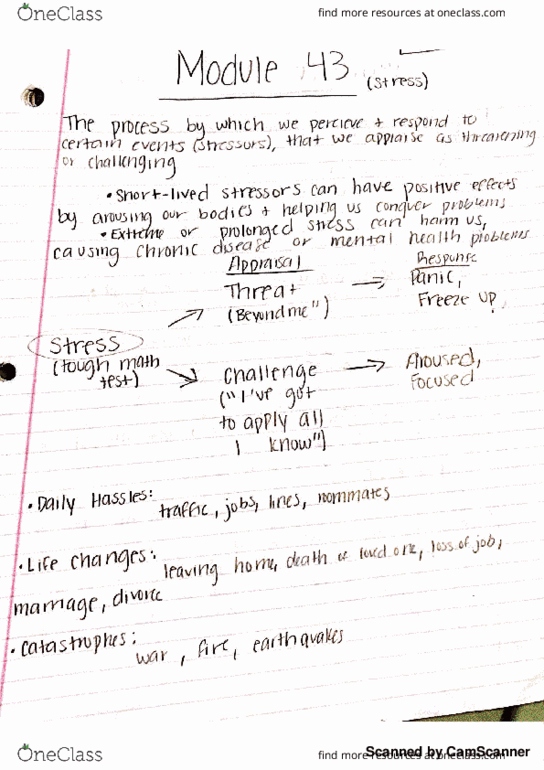 OneClass
find more resources at oneclass.com
Module 43 (stress)
The process by which we percieve + respond to
certain events (stressors), that we appraise as threatening
or challenging
• Short-lived stressors can have positive effects
by arousing our bodies + helping us conquer problems
• Extreme or prolonged stress can harm us,
causing chronic disease or mental health problems
Appraisal
Response
Threat
(Beyond me")
Panic,
Freeze up
Stress
(tough math
test)
Challenge
("I've got
to apply all
I know")
Aroused,
Focused
• Daily Hassles: traffic, jobs, lines, roommates
• Life changes: leaving home, death of loved one, loss of job,
marriage, divorce
• Catastrophes: war, fire, earthquakes
OneClass
find more resources at oneclass.com
Scanned by CamScanner